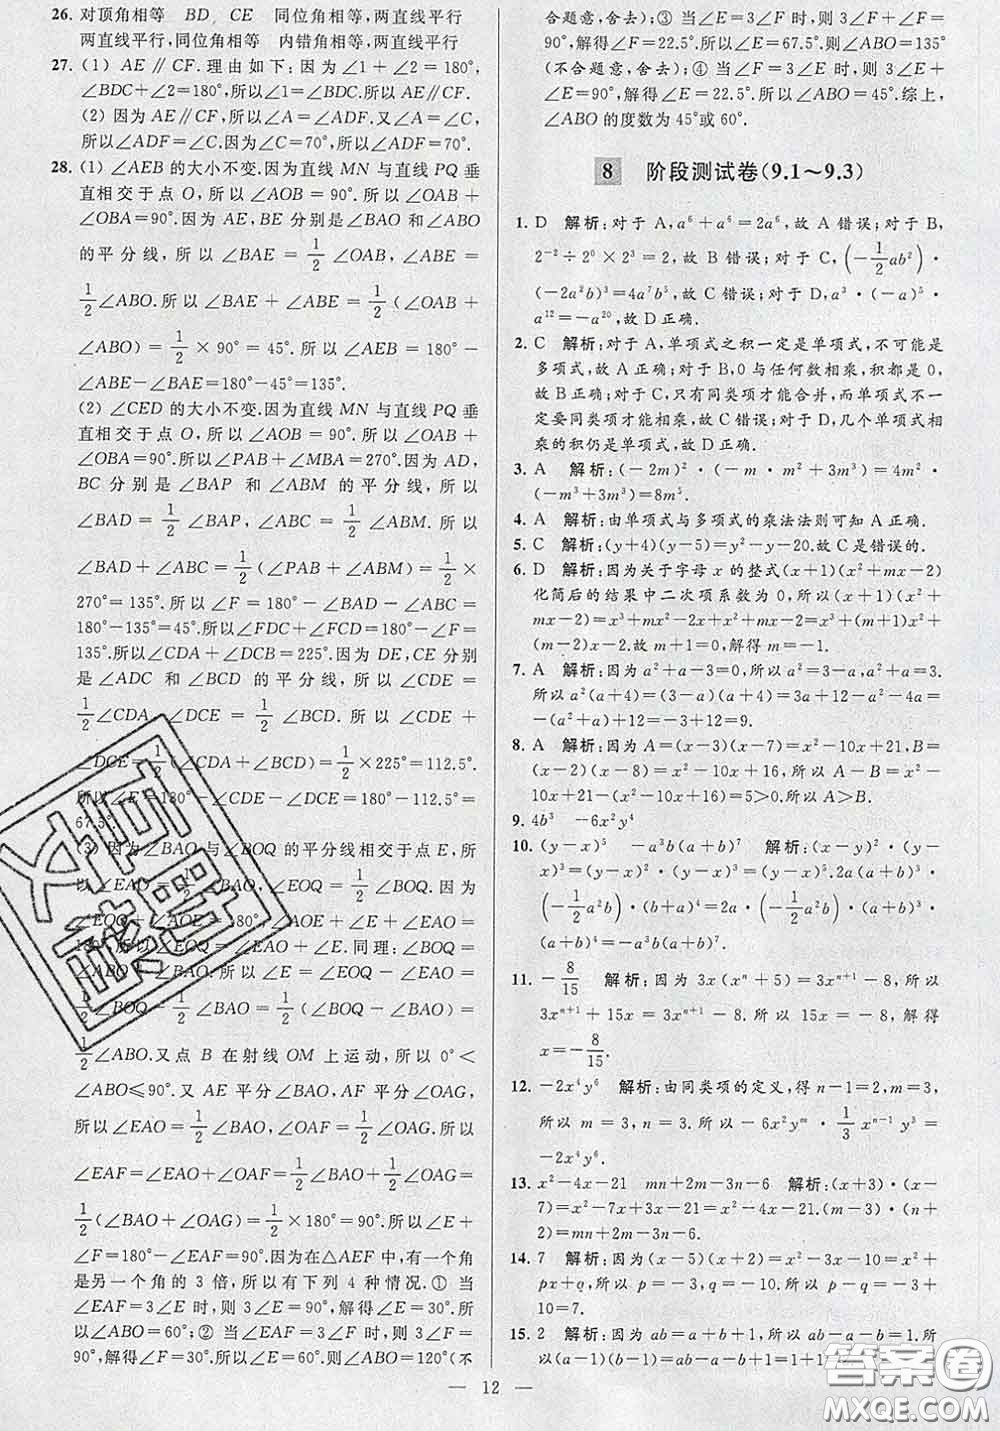 26. 对顶角相等 BD, CE 同位角相等,两直线平行
两直线平行,同位角相等 内错角相等,两直线平行
27. (1) AE∥CF.理由如下:因为∠1+∠2=180°,
∠BDC+∠2=180°,所以∠1=∠BDC.所以AE∥CF.
(2) 因为AE∥CF,所以∠A=∠ADF.又∠A=∠C,
所以∠ADF=∠C.因为∠C=70°,所以∠ADF=70°.
28. (1) ∠AEB的大小不变.因为直线MN与直线PQ垂
直相交于点O,所以∠AOB=90°.所以∠OAB+
∠OBA=90°.因为AE,BE分别是∠BAO和∠ABO
的平分线,所以∠BAE=1/2∠OAB,∠ABE=
1/2∠ABO.所以∠BAE+∠ABE=1/2(∠OAB+
∠ABO)=1/2×90°=45°.所以∠AEB=180°-
∠ABE-∠BAE=180°-45°=135°.
(2) ∠CED的大小不变.因为直线MN与直线PQ垂
直相交于点O,所以∠AOB=90°.所以∠OAB+
∠OBA=90°.所以∠PAB+∠MBA=270°.因为AD,
BC分别是∠BAP和∠ABM的平分线,所以
∠BAD=1/2∠BAP,∠ABC=1/2∠ABM.所以
∠BAD+∠ABC=1/2(∠PAB+∠ABM)=1/2×
270°=135°.所以∠F=180°-∠BAD-∠ABC=
180°-135°=45°.所以∠FDC+∠FCD=180°-∠F=
135°.所以∠CDA+∠DCB=225°.因为DE,CE分别
是∠ADC和∠BCD的平分线,所以∠CDE=
1/2∠CDA,∠DCE=1/2∠BCD.所以∠CDE+
∠DCE=1/2(∠CDA+∠BCD)=1/2×225°=112.5°.
所以∠E=180°-∠CDE-∠DCE=180°-112.5°=
67.5°.
(3) 因为∠BAO与∠BOQ的平分线相交于点E,所
以∠EAO=1/2∠BAO,∠EOQ=1/2∠BOQ.因为
∠EOQ+∠AOE=180°,∠AOE+∠E+∠EAO=
180°,所以∠EOQ=∠EAO+∠E.同理:∠BOQ=
∠ABO+∠BAO.所以∠E=∠EOQ-∠EAO=
1/2∠BOQ-1/2∠BAO=1/2(∠BOQ-∠BAO)=
1/2∠ABO.又点B在射线OM上运动,所以0°<
∠ABO≤90°.又AE平分∠BAO,AF平分∠OAG,
所以∠EAO=1/2∠BAO,∠OAF=1/2∠OAG.所以
∠EAF=∠EAO+∠OAF=1/2∠BAO+1/2∠OAG=
1/2(∠BAO+∠OAG)=1/2×180°=90°.所以∠E+
∠F=180°-∠EAF=90°.因为在△AEF中,有一个角
是另一个角的3倍,所以有下列4种情况.① 当
∠EAF=3∠E时,则3∠E=90°,解得∠E=30°.所以
∠ABO=60°;② 当∠EAF=3∠F时,则3∠F=
90°,解得∠F=30°.所以∠E=60°.则∠ABO=120°(不
合题意,舍去);③ 当∠E=3∠F时,则3∠F+∠F=
90°,解得∠F=22.5°.所以∠E=67.5°,则∠ABO=135°
(不合题意,舍去);④ 当∠F=3∠E时,则3∠E+
∠E=90°,解得∠E=22.5°.所以∠ABO=45°.综上,
∠ABO的度数为45°或60°.
8 阶段测试卷(9.1～9.3)
1. D 解析:对于A,a⁶+a⁶=2a⁶,故A错误;对于B,
2⁻²÷2⁰×2³=2,故B错误;对于C,(-1/2ab²)·
(-2a²b)³=4a⁷b⁵,故C错误;对于D,a³·(-a)⁵·
a¹²=-a²⁰,故D正确.
2. C 解析:对于A,单项式之积一定是单项式,不可能是
多项式,故A正确;对于B,0与任何数相乘,积都是0,
故B正确;对于C,只有同类项才能合并,而单项式不一
定要同类项才能相乘,故C错误;对于D,几个单项式相
乘的积仍是单项式,故D正确.
3. A 解析:(-2m)²·(-m·m²+3m³)=4m²·
(-m³+3m³)=8m⁵.
4. A 解析:由单项式与多项式的乘法法则可知A正确.
5. C 解析:(y+4)(y-5)=y²-y-20.故C是错误的.
6. D 解析:因为关于字母x的整式(x+1)(x²+mx-2)
化简后的结果中二次项系数为0,所以(x+1)(x²+
mx-2)=x³+mx²-2x+x²+mx-2=x³+(m+1)x²+
(m-2)x-2.故m+1=0,解得m=-1.
7. A 解析:因为a²+a-3=0,所以a²=3-a,a²+a=3.
所以a²(a+4)=(3-a)(a+4)=3a+12-a²-4a=
-(a²+a)+12=-3+12=9.
8. A 解析:因为A=(x-3)(x-7)=x²-10x+21,B=
(x-2)(x-8)=x²-10x+16,所以A-B=x²-
10x+21-(x²-10x+16)=5>0.所以A>B.
9. 4b³ -6x²y⁴
10. (y-x)⁵ -a³b(a+b)⁷ 解析:(x-y)²·(y-
x)³=(y-x)²·(y-x)³=(y-x)⁵.2a(a+b)³·
(-1/2a²b)·(b+a)⁴=2a·(-1/2a²b)·(a+b)³·
(a+b)⁴=-a³b(a+b)⁷.
11. -8/15 解析:因为3x(xⁿ+5)=3xⁿ⁺¹-8,所以
3xⁿ⁺¹+15x=3xⁿ⁺¹-8.所以15x=-8,解得
x=-8/15.
12. -2x⁴y⁶ 解析:由同类项的定义,得n-1=2,m=3,
所以m=3,n=3.所以-6x²yᵐ·1/3xⁿ⁻¹y³=
-2x⁴y⁶.
13. x²-4x-21 mn+2m-3n-6 解析:(x+3)·(x-
7)=x²-7x+3x-21=x²-4x-21.(m-3)·(n+
2)=mn+2m-3n-6.
14. 7 解析:因为(x-5)(x+2)=x²-3x-10=x²+
px+q,所以p=-3,q=-10.所以p-q=-3+
10=7.
15. 2 解析:因为ab=a+b+1,所以ab-a-b=1.所
以(a-1)(b-1)=ab-a-b+1=1+1=2.
— 12 —
答案圈
MXQE.COM